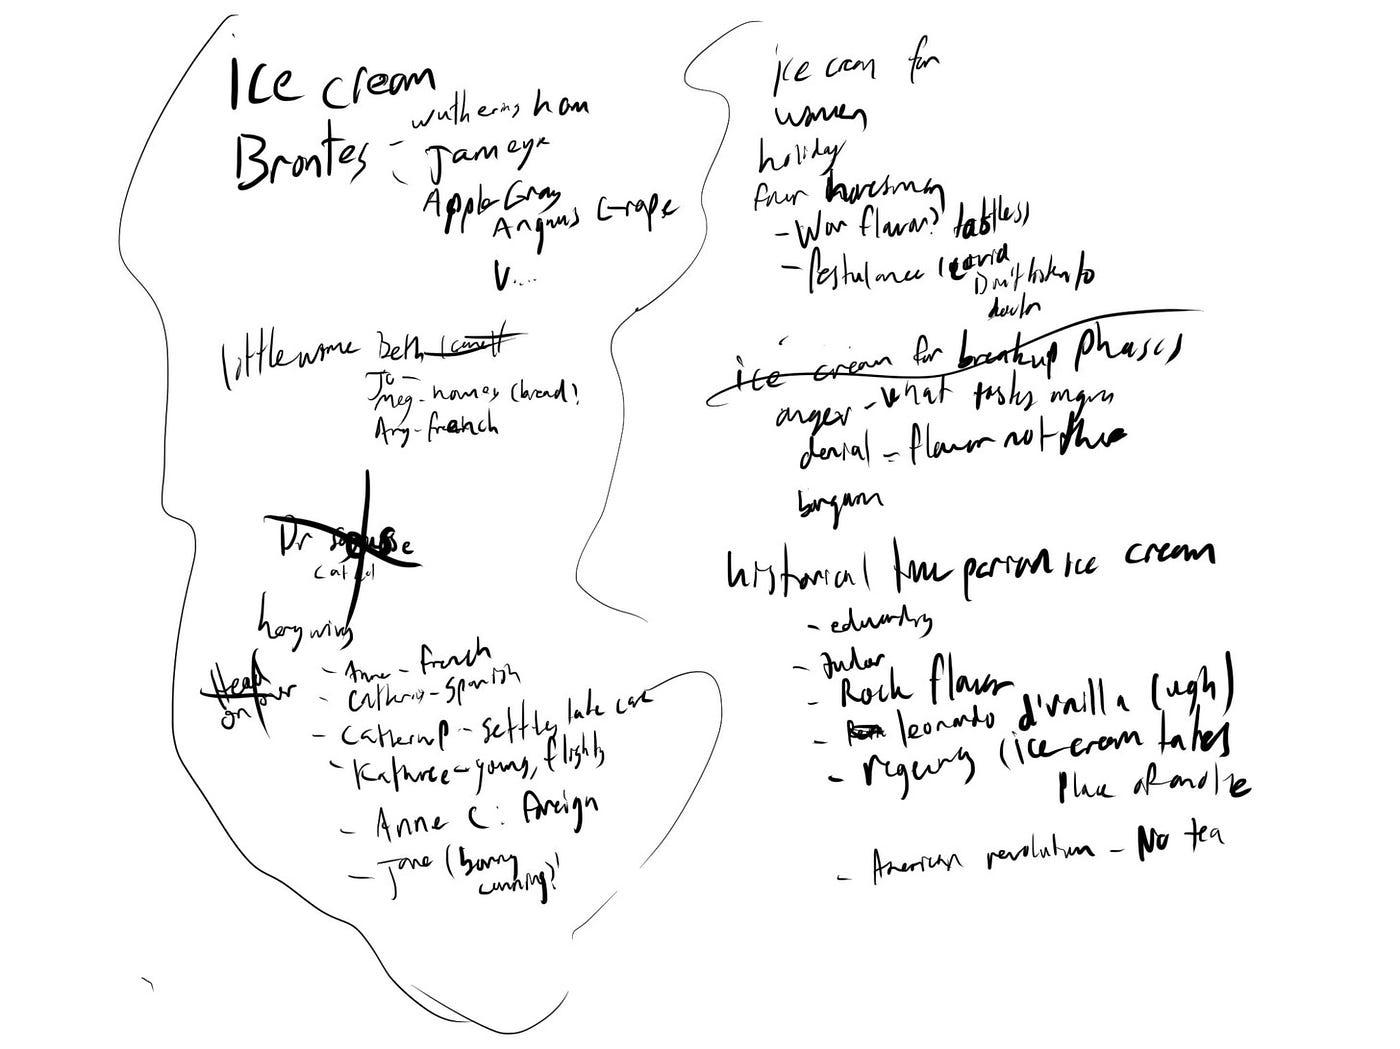 Ice cream
Brontes - wuthering ham
Jam eye
Apple Gray
Angnus Grape
V....
little wome Beth
Jo -
Meg - homey (bread?
Amy - french
Dr
hery wivs
Head
on
- Anne - french
- Catherin - Spanish
- Catherin P - settles late
- Kathree - young, flighty
- Anne C: foreign
- Jane (borng
cunning?)
ice cream for
women
holiday
four horesmen
- War flavor? tastless
- Pestulance (covid
Don't listen to
doctor
ice cream for breakup phases
anger - what tasts
denial = flavor not
bargain
historical time period ice cream
- edwardy
- Tudor
- Rock flavor
- leonardo d'vnailla (ugh)
- regency (ice cream takes
place
- American revolution - No tea